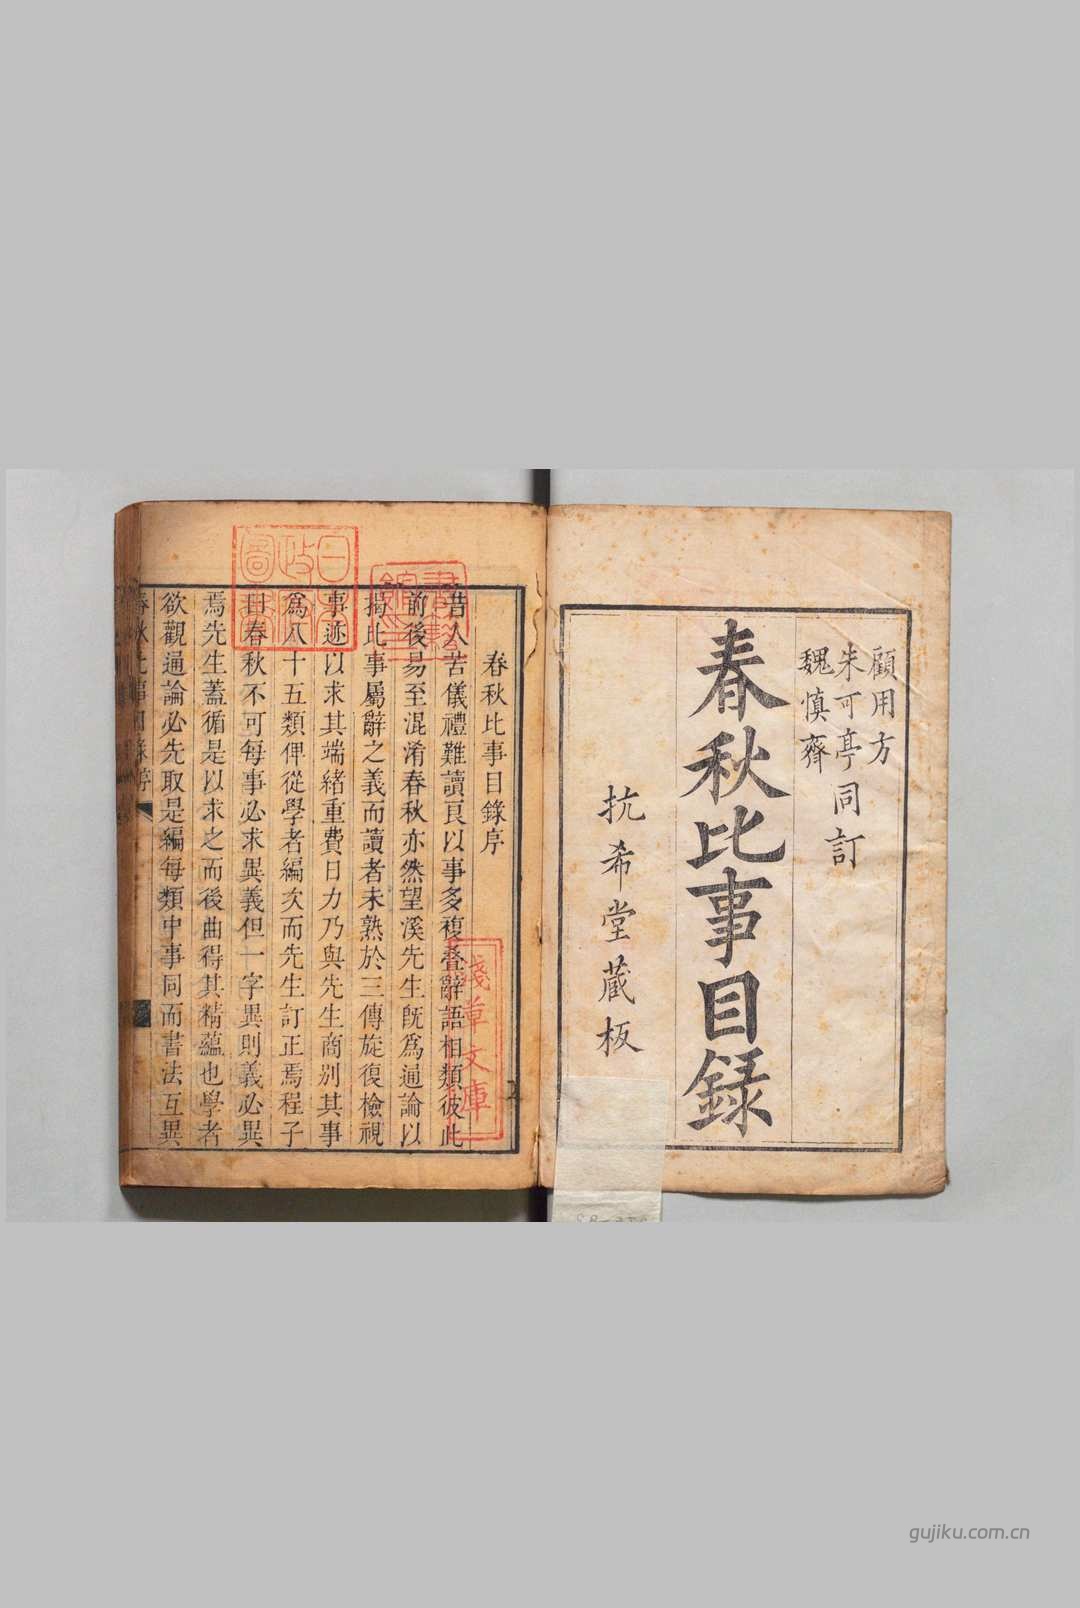 顧用方
朱可亭同訂
魏慎齋
春秋比事目錄
抗希堂藏板
春秋比事目錄序
昔人苦儀禮難讀良以事多複疊辭語相類彼此
前後易至混淆春秋亦然望溪先生旣爲通論以
揭比事屬辭之義而讀者未熟於三傳旋復檢視
事迹以求其端緒重費日力乃與先生商別其事
爲八十五類俾從學者編次而先生訂正焉程子
曰春秋不可每事必求異義但一字異則義必異
焉先生蓋循是以求之而後曲得其精蘊也學者
欲觀通論必先取是編每類中事同而書法互異
春秋比事目錄序
淺草文庫
gujiku.com.cn